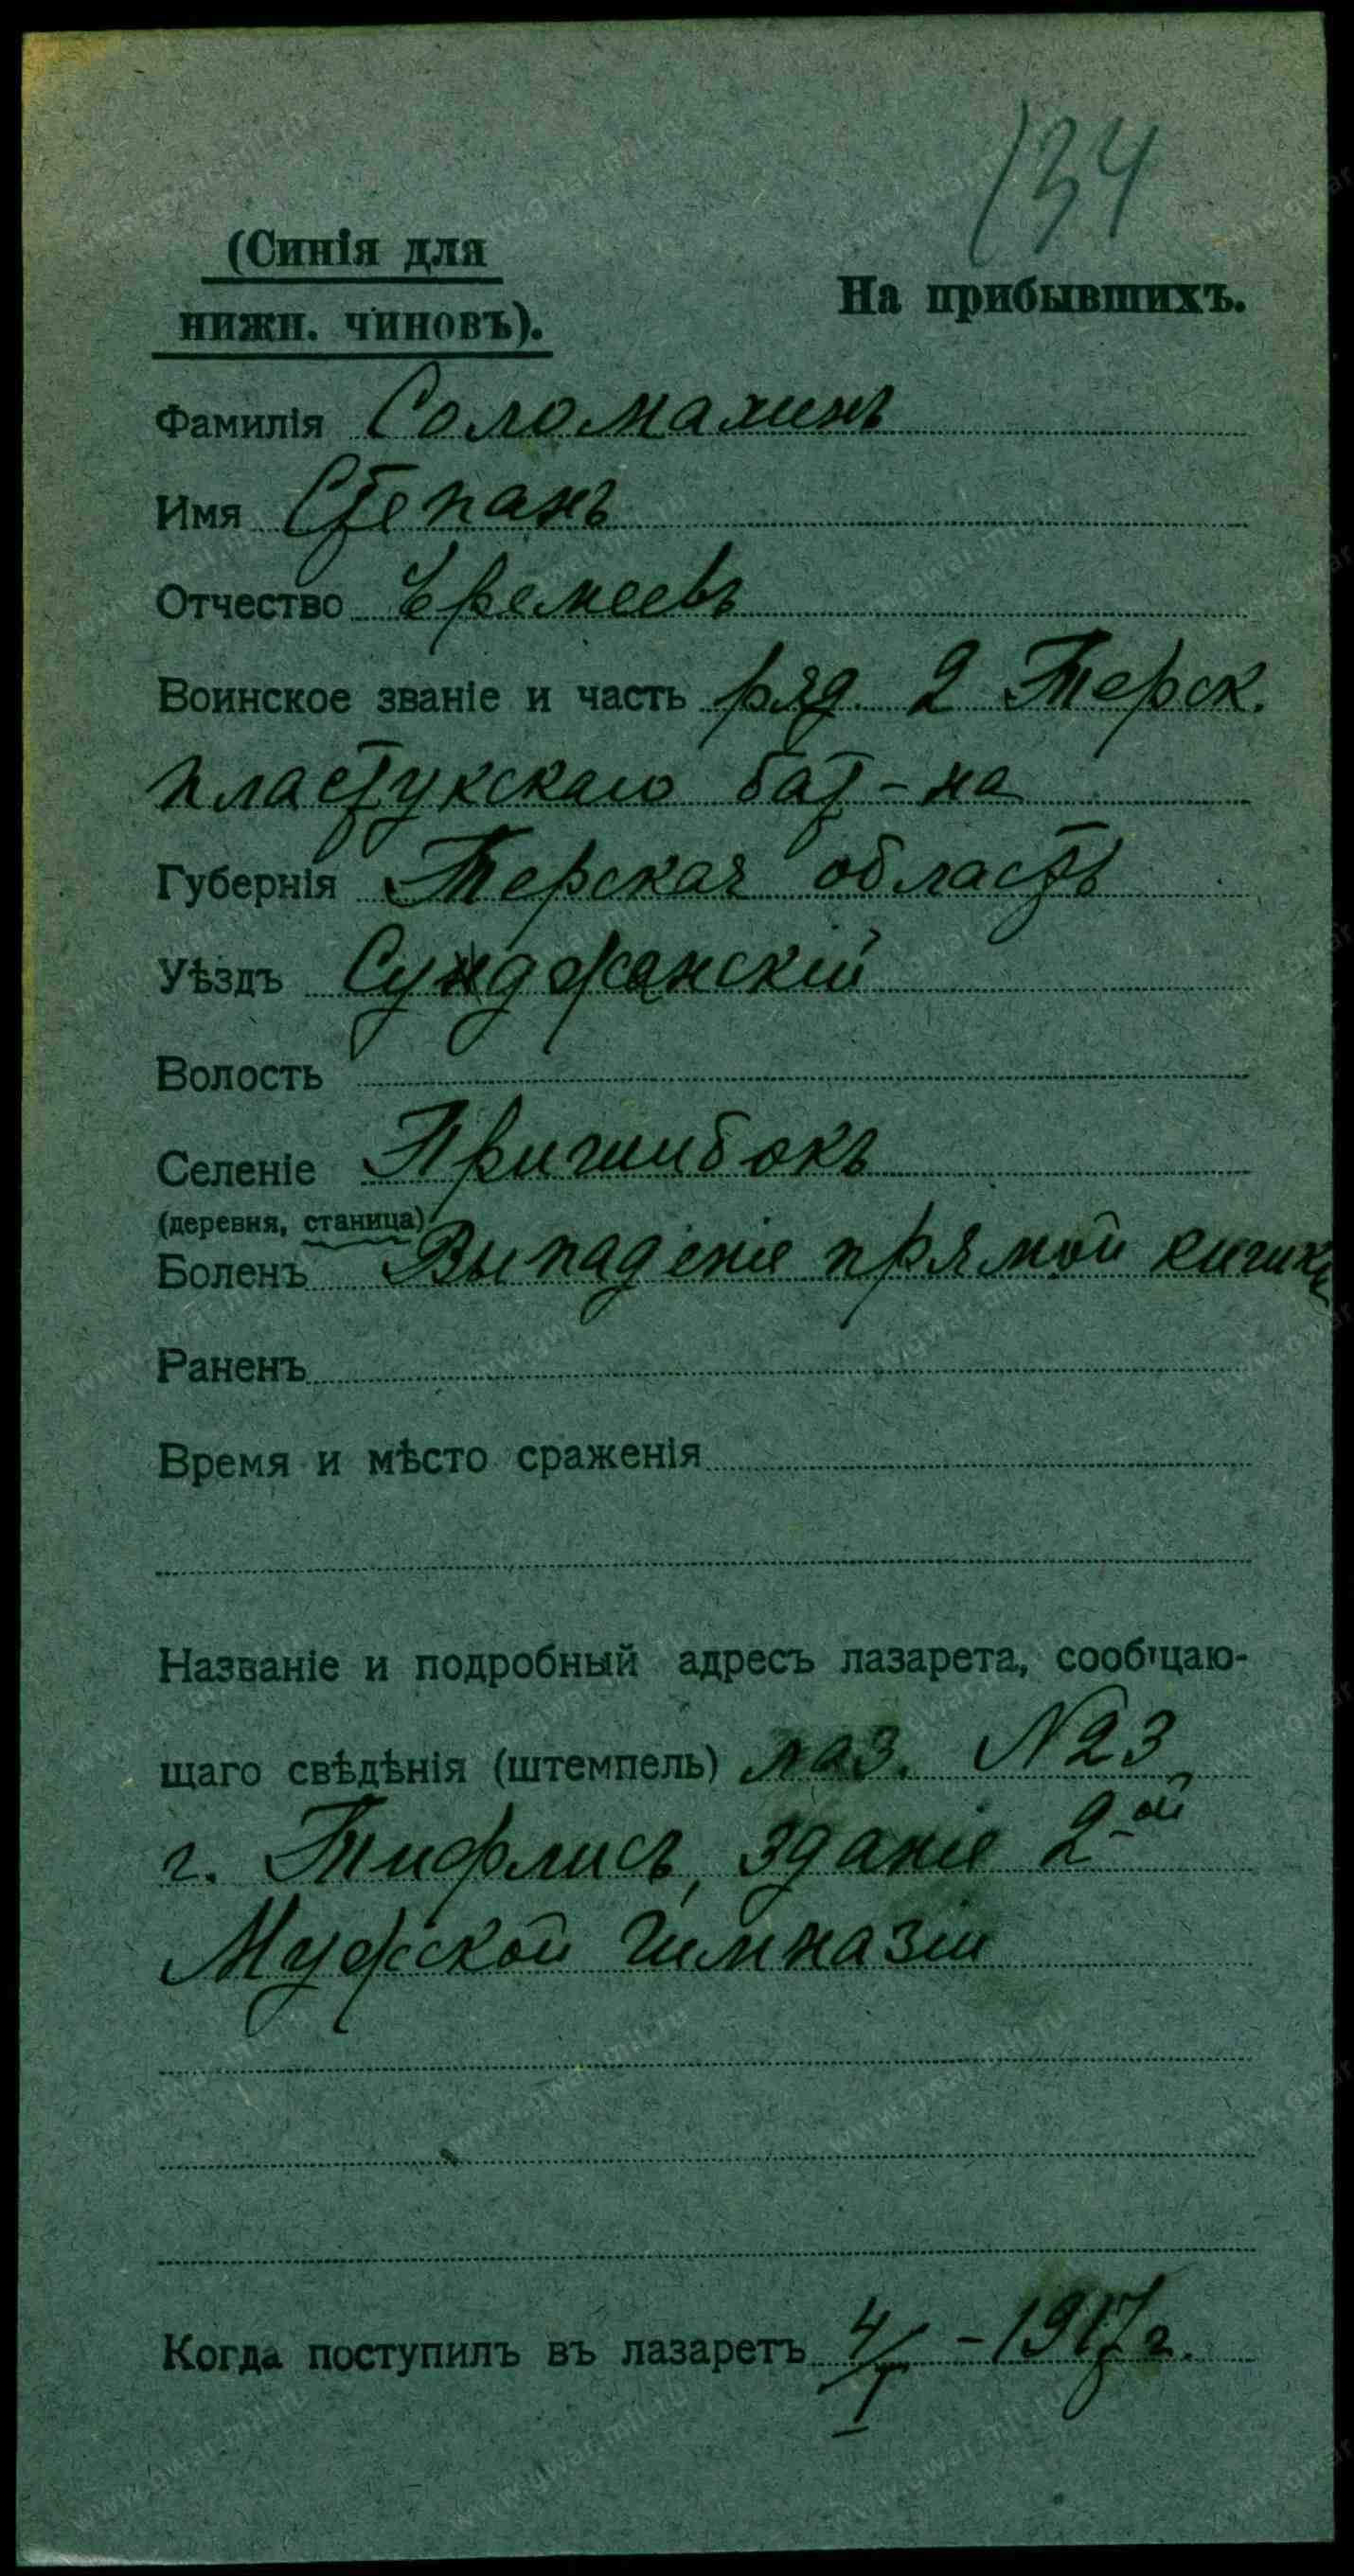 134
(Синія для
нижн. чиновъ).
На прибывшихъ.
Фамилія Соломахинъ
Имя Степанъ
Отчество Еремеевъ
Воинское званіе и часть ряд. 2 Терск.
пластунскаго бат-на
Губернія Терская область
Уѣздъ Сунджанскій
Волость
Селеніе Пришибокъ
(деревня, станица)
Боленъ Выпаденіе прямой кишки
Раненъ
Время и мѣсто сраженія
Названіе и подробный адресъ лазарета, сообщаю-
щаго свѣдѣнія (штемпель) лаз. №23
г. Тифлисъ, зданіе 2-ой
Мужской гимназіи
Когда поступилъ въ лазаретъ 4/I - 1917 г.